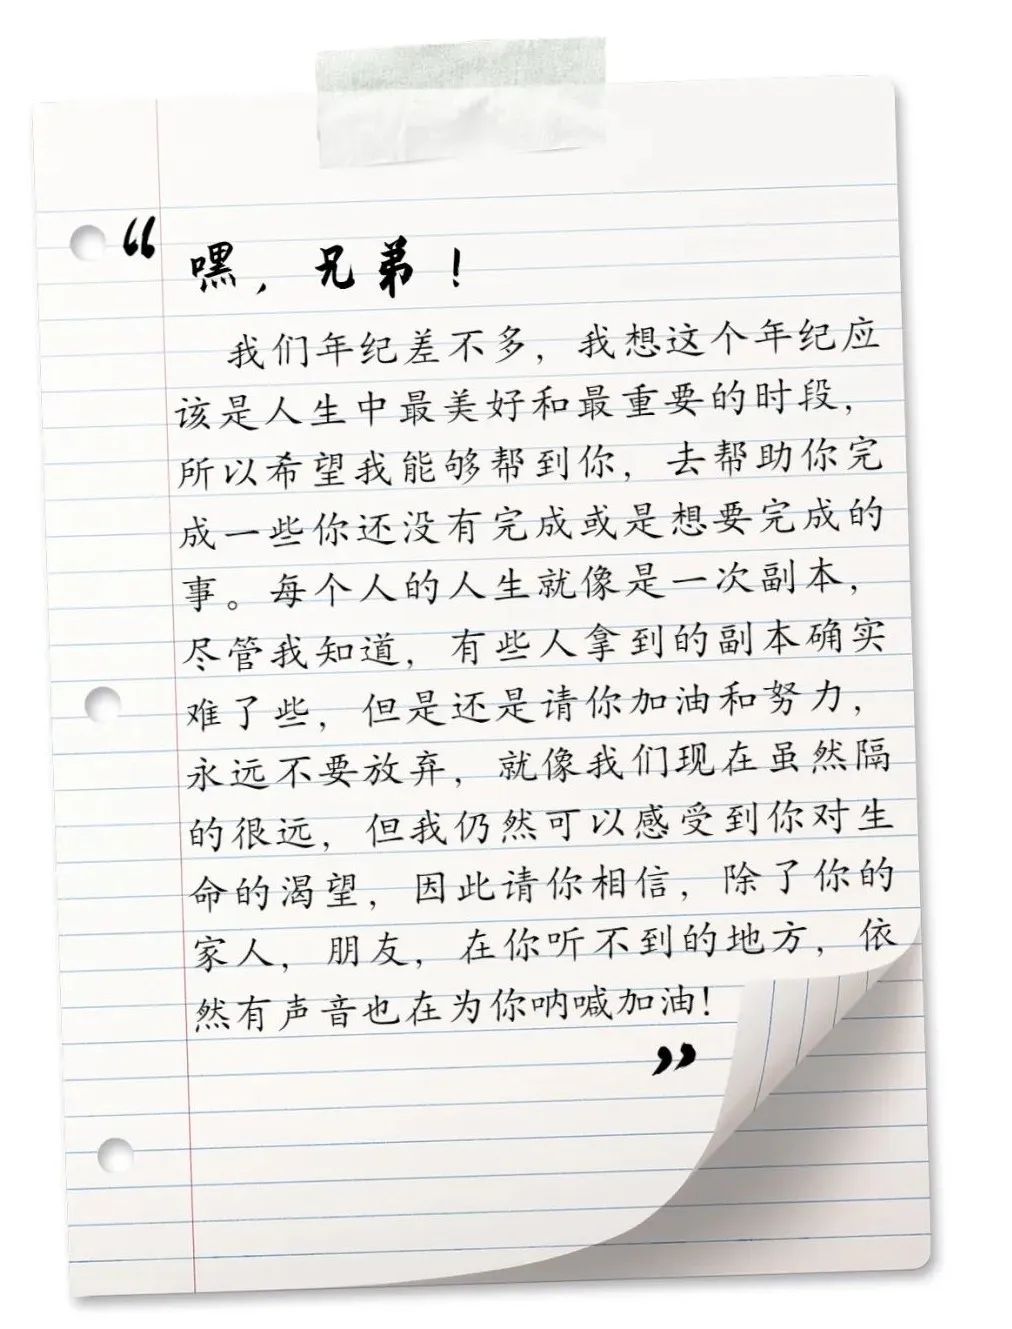 “嘿，兄弟！
我们年纪差不多，我想这个年纪应
该是人生中最美好和最重要的时段，
所以希望我能够帮到你，去帮助你完
成一些你还没有完成或是想要完成的
事。每个人的人生就像是一次副本，
尽管我知道，有些人拿到的副本确实
难了些，但是还是请你加油和努力，
永远不要放弃，就像我们现在虽然隔
的很远，但我仍然可以感受到你对生
命的渴望，因此请你相信，除了你的
家人，朋友，在你听不到的地方，依
然有声音也在为你呐喊加油！
”